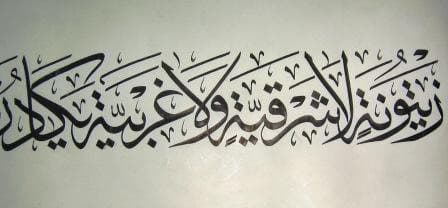 زَيْتُونَةٍ لَا شَرْقِيَّةٍ وَلَا غَرْبِيَّةٍ يَكَادُ